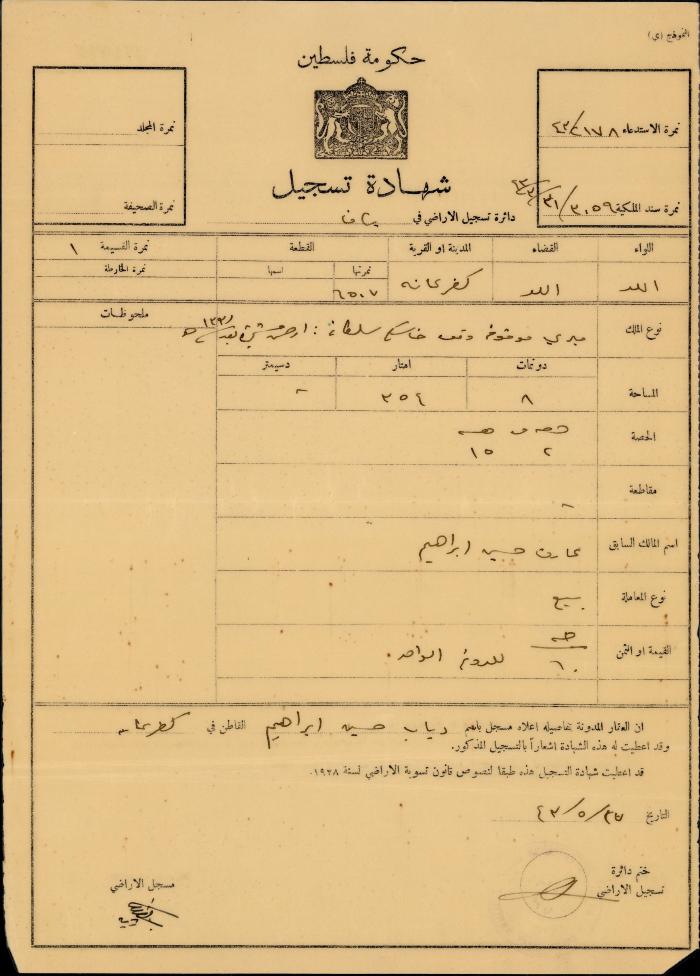 النموذج (ي)
حكومة فلسطين
نمرة الاستدعاء
نمرة المجلد
شهادة تسجيل
نمرة سند الملكية
نمرة الصحيفة
دائرة تسجيل الاراضي في يافا
اللواء القضاء المدينة او القرية القطعة نمرة القسيمة ١
نمرتها اسمها نمرة الخارطة
اللد اللد كفرعانه ٦٥٠٧
ملحوظات
نوع الملك ميري موقوفة وقف خاسكي سلطان
دونمات امتار دسيمتر
المساحة ٨ ٣٥٤ -
الحصة حصه من
٢ ١٥
مقاطعة -
اسم المالك السابق عارف حسين ابراهيم
نوع المعاملة بيع
القيمة او الثمن ٦٠ للدونم الواحد
ان العقار المدونة تفاصيله اعلاه مسجل باسم دياب حسين ابراهيم القاطن في كفرعانه
وقد اعطيت له هذه الشهادة اشعاراً بالتسجيل المذكور.
قد اعطيت شهادة التسجيل هذه طبقا لنصوص قانون تسوية الاراضي لسنة ١٩٢٨.
التاريخ
ختم دائرة
تسجيل الاراضي
مسجل الاراضي